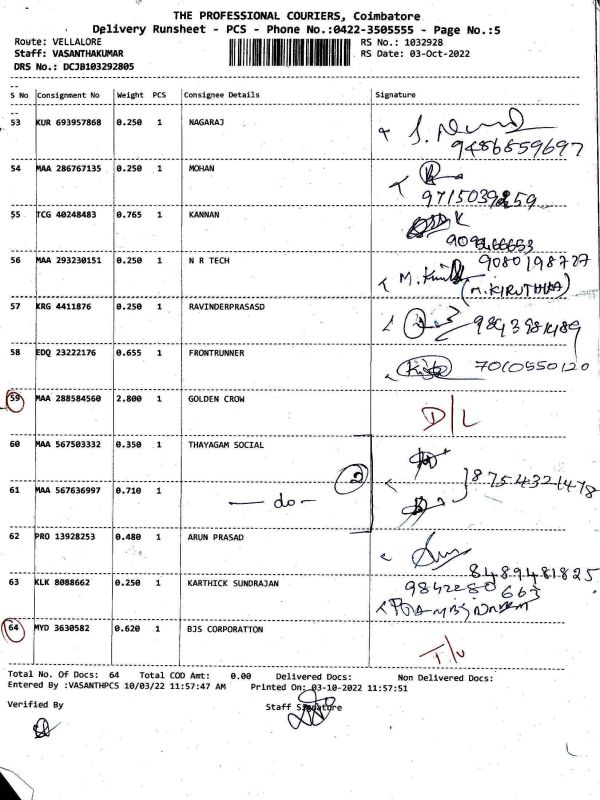 THE PROFESSIONAL COURIERS, Coimbatore
Delivery Runsheet - PCS - Phone No.:0422-3505555 - Page No.:5
Route: VELLALORE RS No.: 1032928
Staff: VASANTHAKUMAR RS Date: 03-Oct-2022
DRS No.: DCJB103292805
S No Consignment No Weight PCS Consignee Details Signature
53 KUR 693957868 0.250 1 NAGARAJ
9486859697
54 MAA 286767135 0.250 1 MOHAN
55 TCG 40248483 0.765 1 KANNAN
56 MAA 293230151 0.250 1 N R TECH 9080198727
(M.KIRUTHIKA)
57 KRG 4411876 0.250 1 RAVINDERPRASASD
58 EDQ 23222176 0.655 1 FRONTRUNNER 7010550120
59 MAA 288584560 2.800 1 GOLDEN CROW D/L
60 MAA 567503332 0.350 1 THAYAGAM SOCIAL
2 8754321478
61 MAA 567636997 0.710 1 - do -
62 PRO 13928253 0.480 1 ARUN PRASAD
8489481825
63 KLK 8088662 0.250 1 KARTHICK SUNDRAJAN 9842280663
64 MYD 3630582 0.620 1 BJS CORPORATTON
Total No. Of Docs: 64 Total COD Amt: 0.00 Delivered Docs: Non Delivered Docs:
Entered By :VASANTHPCS 10/03/22 11:57:47 AM Printed On: 03-10-2022 11:57:51
Verified By Staff Signature